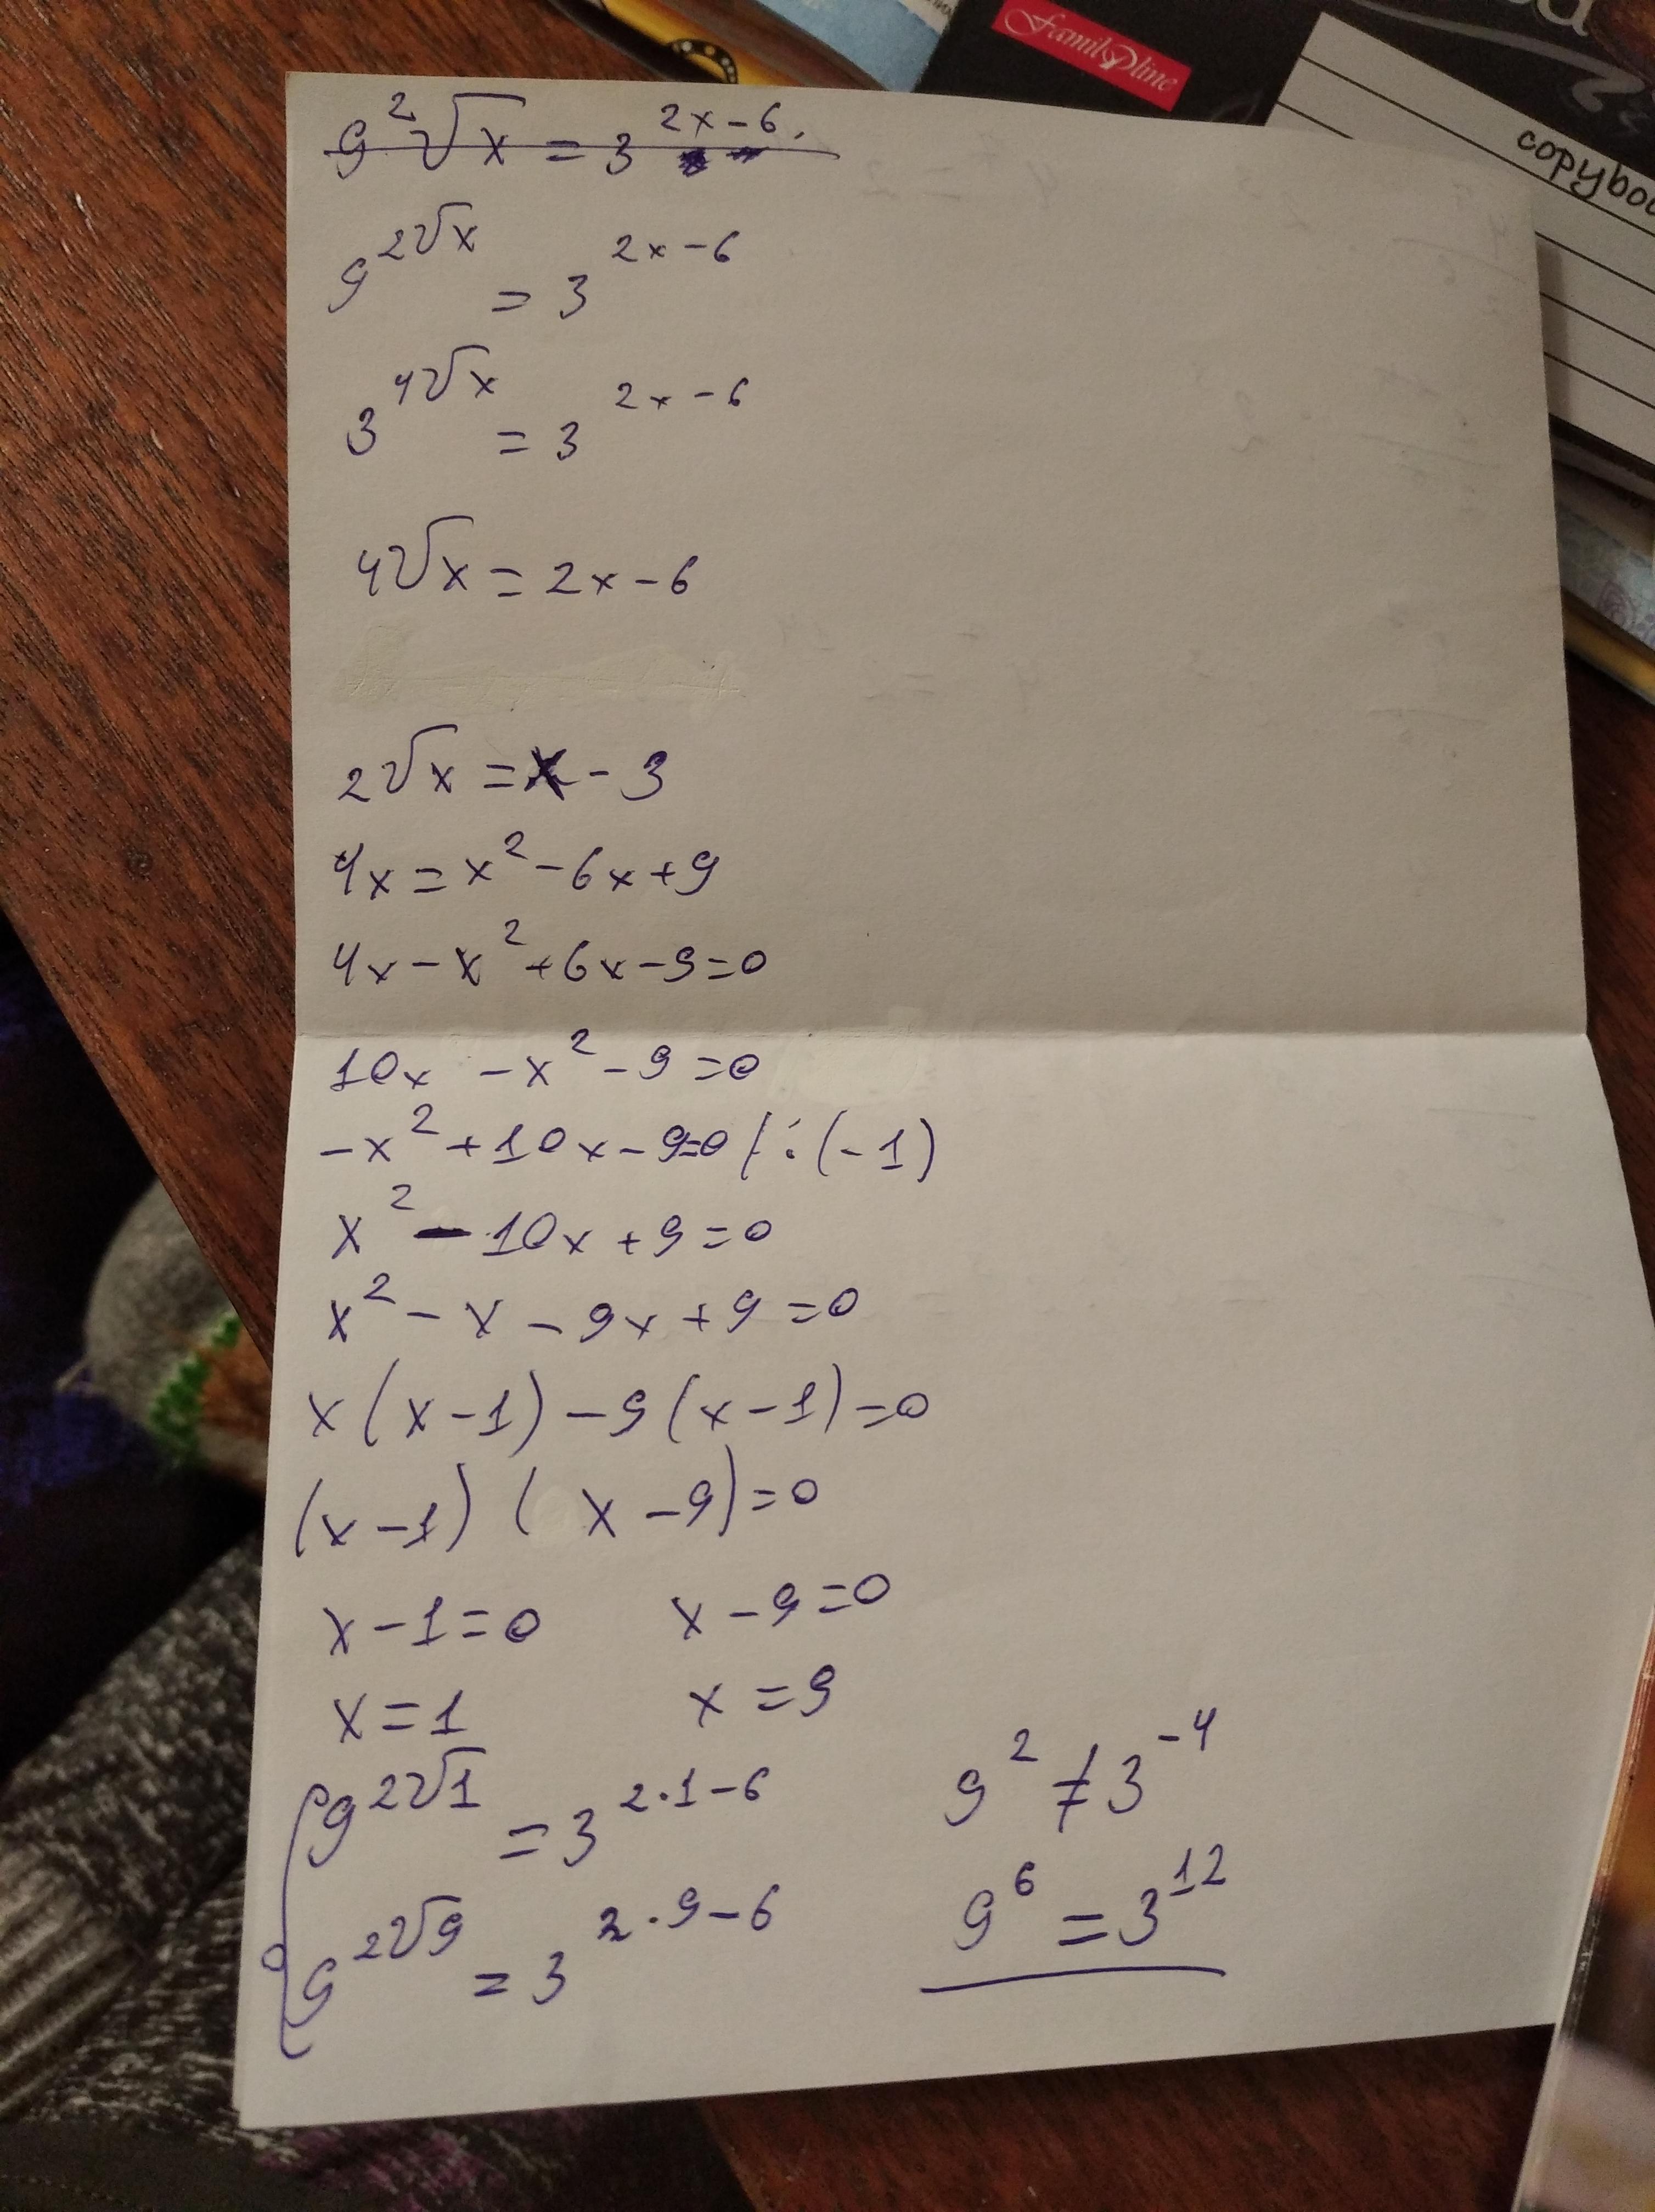 FamilyLine
copyboo
9²√x = 3^(2x-6).
9^(2√x) = 3^(2x-6)
3^(4√x) = 3^(2x-6)
4√x = 2x-6
2√x = x-3
4x = x²-6x+9
4x-x²+6x-9=0
10x -x²-9=0
-x²+10x-9=0 /:(-1)
x²-10x+9=0
x²-x-9x+9=0
x(x-1)-9(x-1)=0
(x-1)(x-9)=0
x-1=0 x-9=0
x=1 x=9
9^(2√1) = 3^(2·1-6) 9² ≠ 3^(-4)
9^(2√9) = 3^(2·9-6) 9⁶ = 3¹²